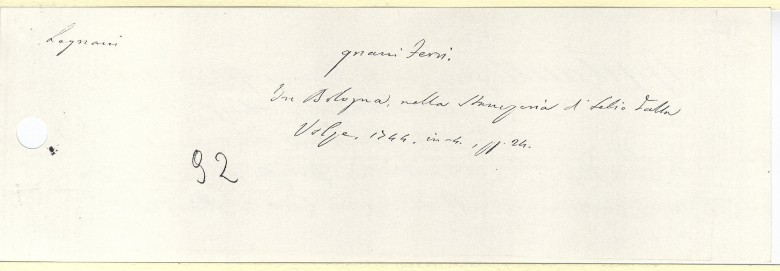 Legnani
gnani Ferri.
In Bologna, nella Stamperia di Lelio Dalla
Volpe, 1744, in-4. , pp. 24.
92